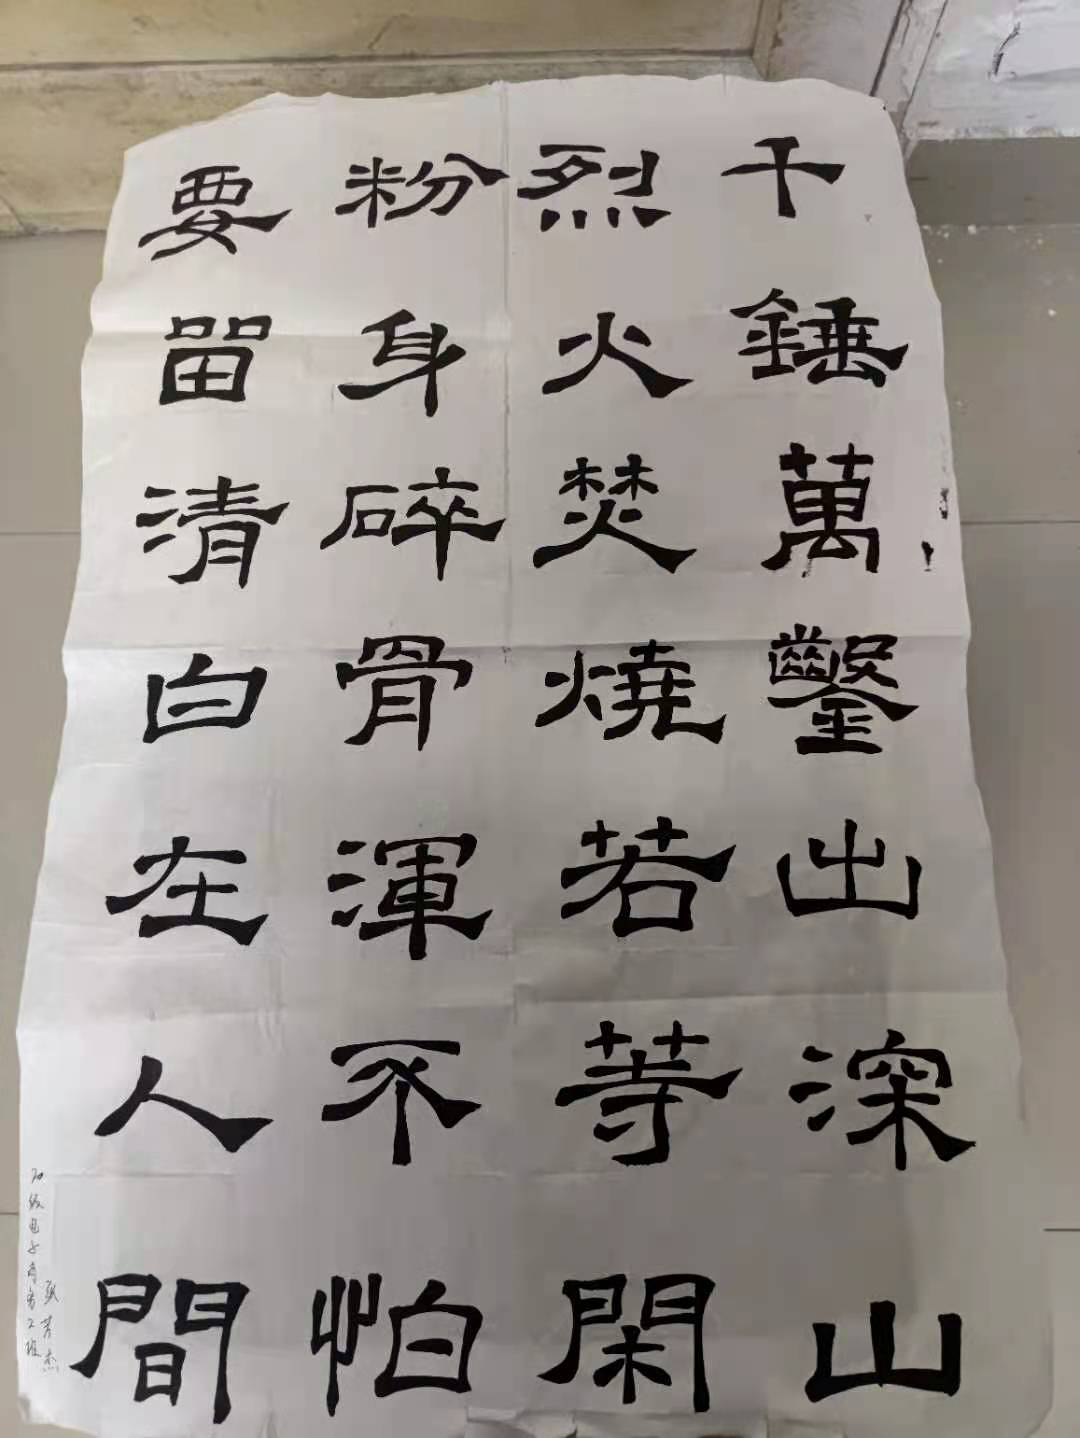 千錘萬鑿出深山
烈火焚燒若等閑
粉身碎骨渾不怕
要留清白在人間
20级电子商务2班